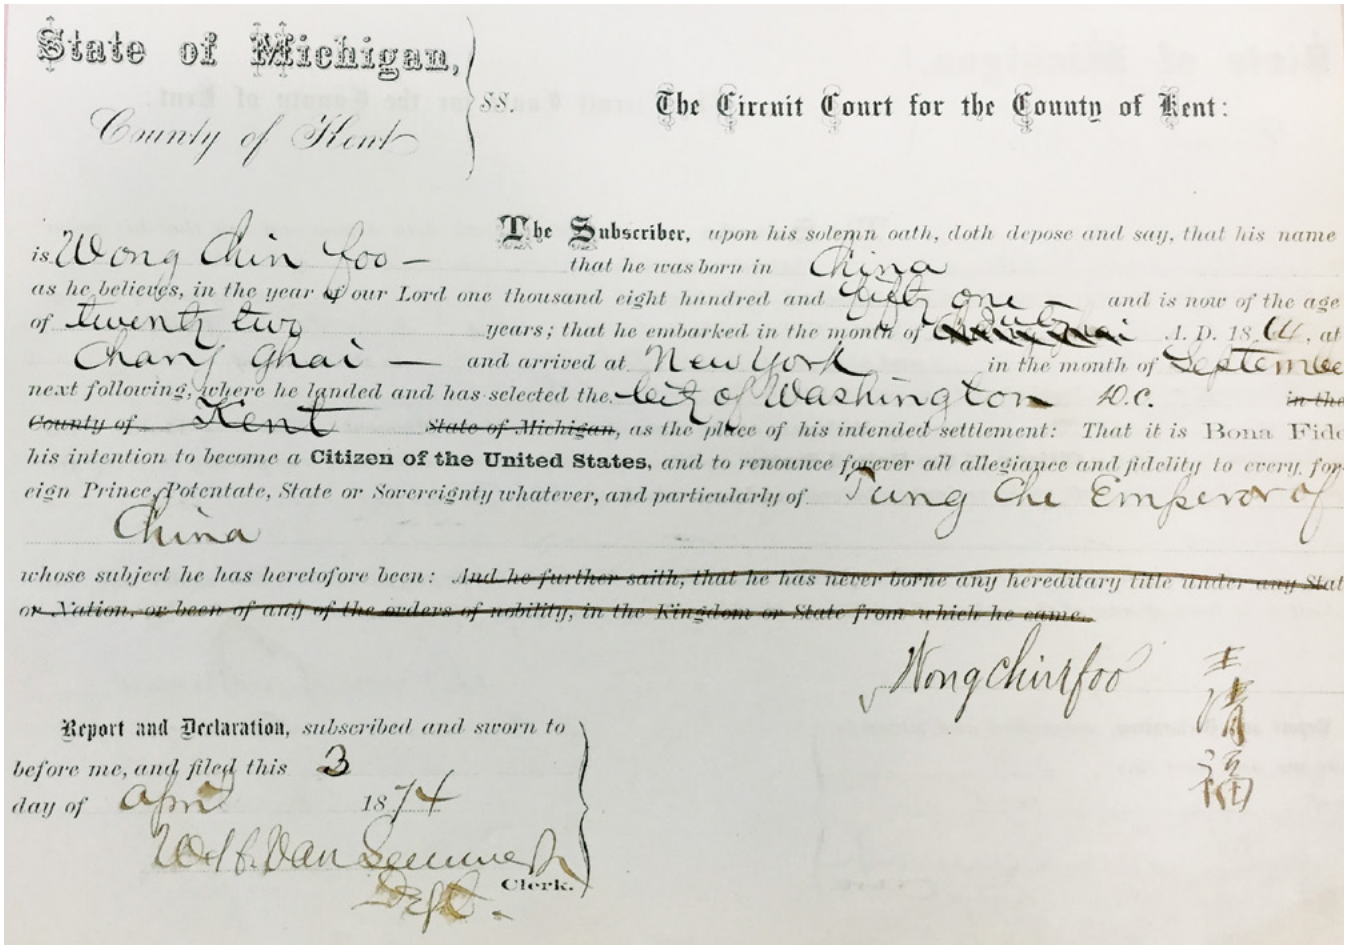 State of Michigan,
County of Kent
SS.
The Circuit Court for the County of Kent:
The Subscriber, upon his solemn oath, doth depose and say, that his name
is Wong Chin Foo — that he was born in China
as he believes, in the year of our Lord one thousand eight hundred and fifty one — and is now of the age
of twenty two years; that he embarked in the month of July A. D. 1864, at
Chang Ghai — and arrived at New York in the month of Septembe
next following, where he landed and has selected the City of Washington D.C. in the
County of Kent State of Michigan, as the place of his intended settlement: That it is Bona Fide
his intention to become a Citizen of the United States, and to renounce forever all allegiance and fidelity to every, for-
eign Prince, Potentate, State or Sovereignty whatever, and particularly of Tung Che Emperor of
China
whose subject he has heretofore been: And he further saith, that he has never borne any hereditary title under any Stat
or Nation, or been of any of the orders of nobility, in the Kingdom or State from which he came.
Wong Chin foo
王清福
Report and Declaration, subscribed and sworn to
before me, and filed this 3
day of April 1874
Van
Clerk.
Dept.